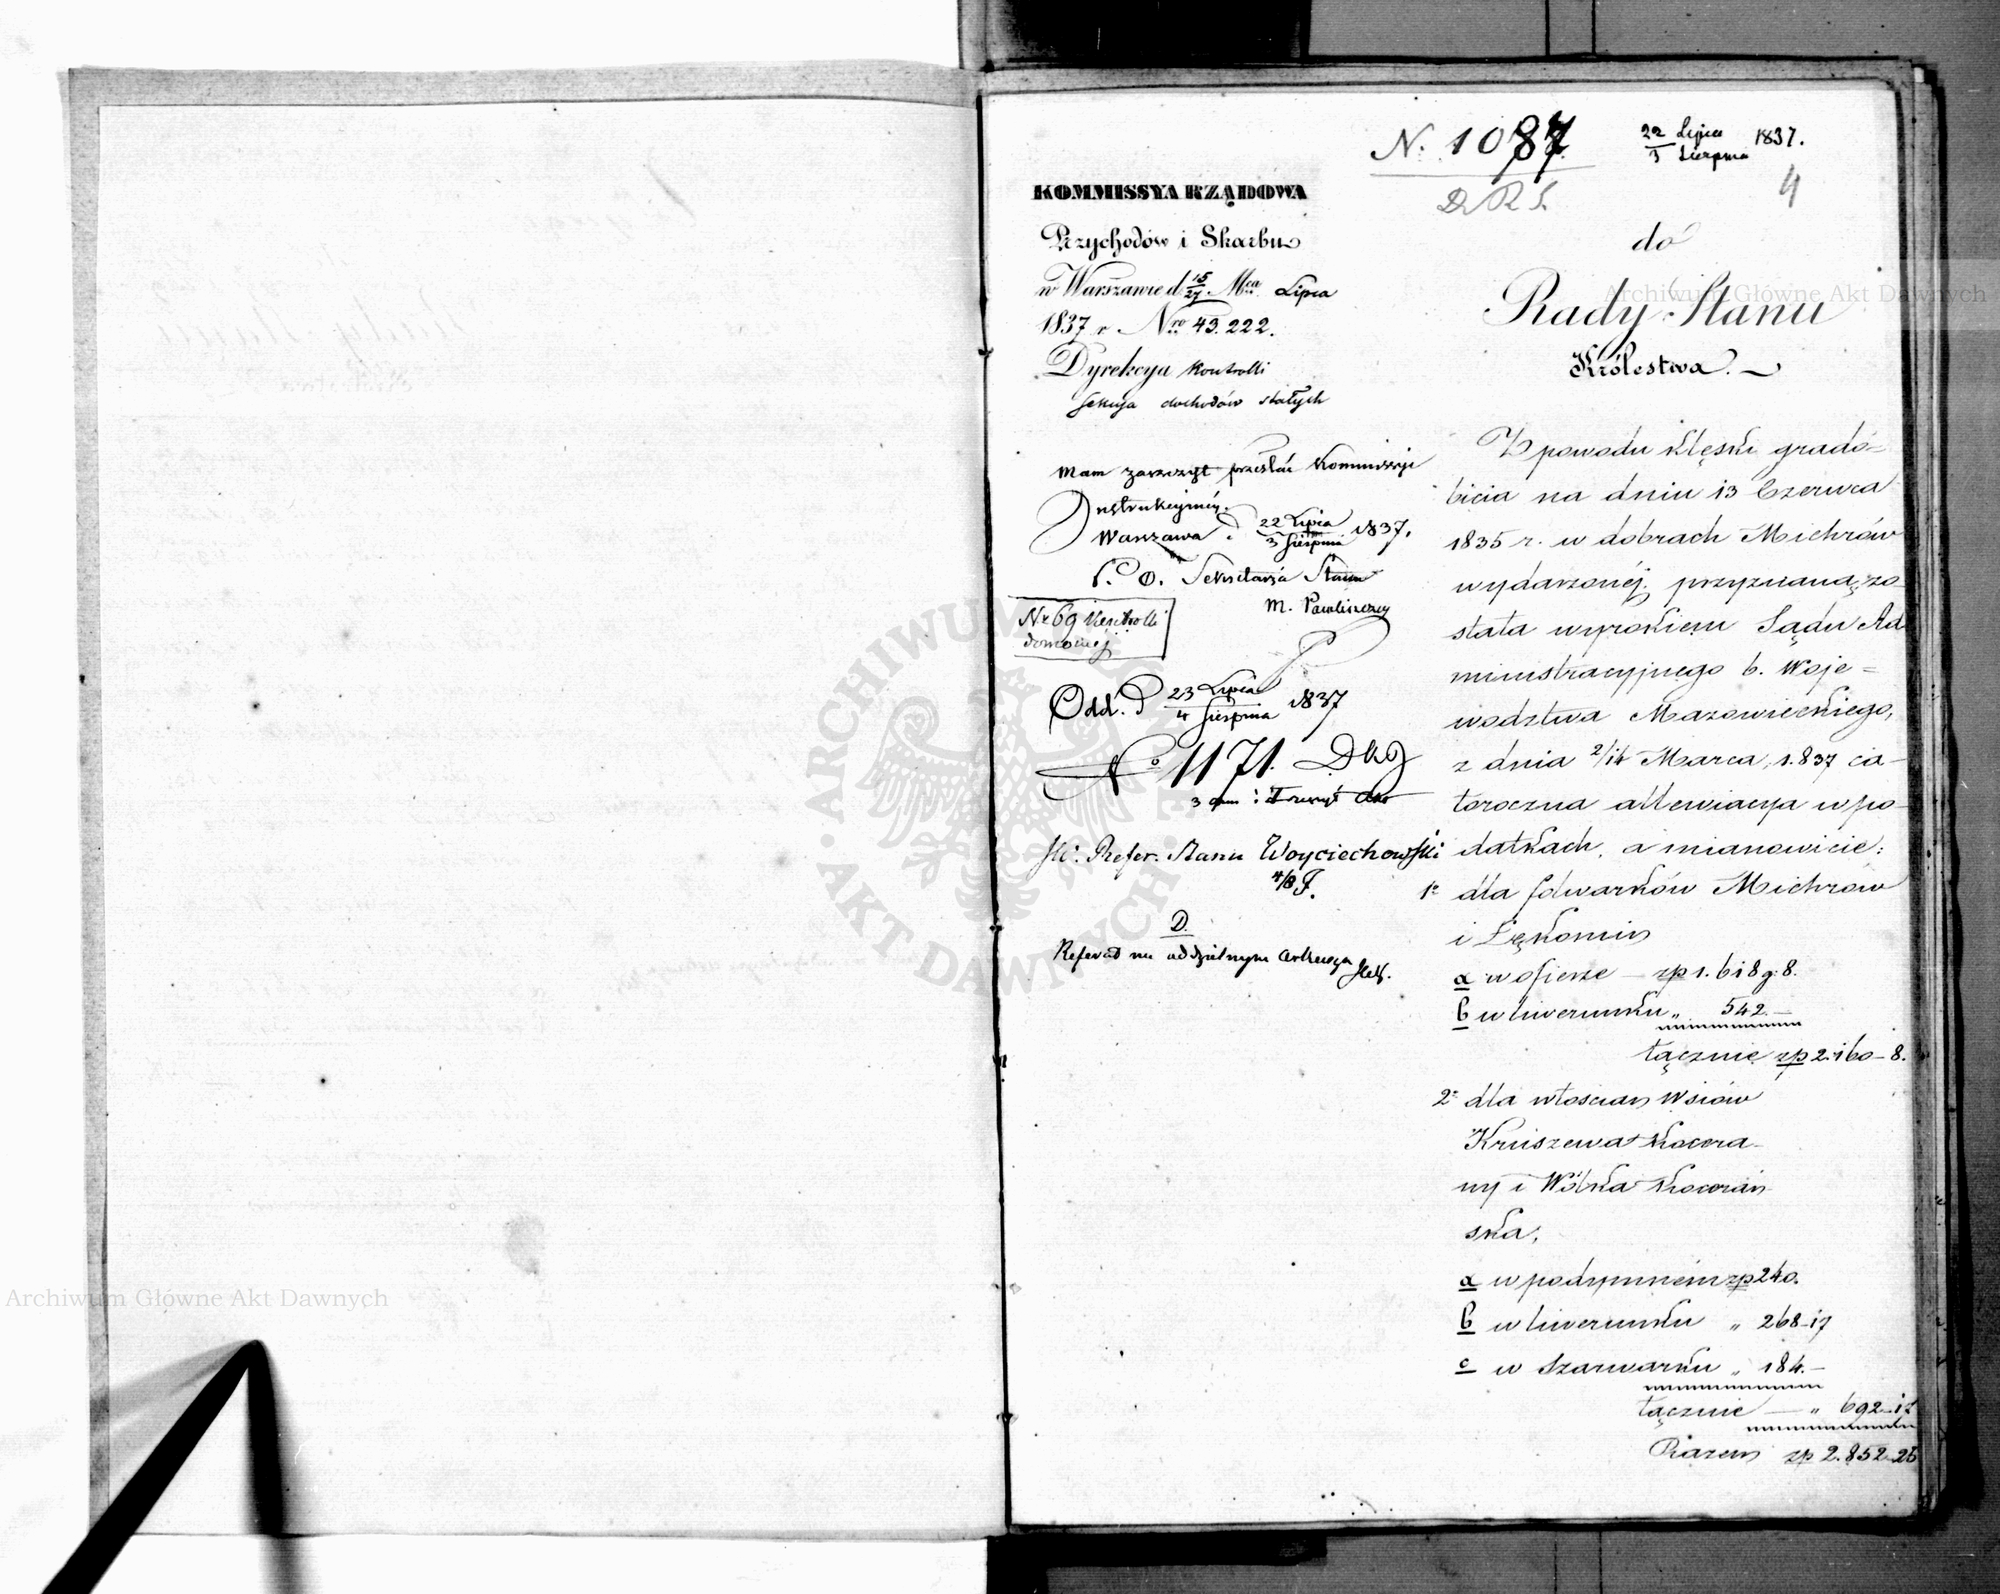 N. 1087
22 Lipca 1837.
3 Sierpnia
D R S.
4
KOMMISSYA RZĄDOWA
Przychodów i Skarbu
w Warszawie d 15/27 Mca Lipca
1837 r Nro 43.222.
Dyrekcya Kontrolli
Sekcya dochodów stałych
Mam zaszczyt przesłać Kommissyi
Instrukcyjnéy.
Warszawa d 22 Lipca 1837.
3 Sierpnia
P. O. Sekretarza Stanu
M. Pawliszczew
Nr 69 Kontrolli
domowéj
Odd. d 23 Lipca 1837
4 Sierpnia
No 1171.
JW. Refer. Stanu Woyciechowski
4/8 J.
D.
Referat na oddzielnym arkuszu
do
Rady Stanu
Królestwa.
Z powodu klęski grado=
bicia na dniu 13 Czerwca
1835 r. w dobrach Michrów
wydarzonéj, przyznaną zo
stała wyrokiem Sądu Ad
ministracyjnego b. Woje=
wodztwa Mazowieckiego,
z dnia 2/14 Marca, 1837 ca-
łoroczna allewiacya w po-
datkach, a mianowicie:
1e dla folwarków Michrow
i Lękomin
a w ofierze — zp 1.618 g: 8.
b w liwerunku „ 542.—
łącznie zp 2.160–8.
2e dla włoscian wsiów
Kruszewa Kocera-
ny i Wólka Koceran
ska,
a w podymném zp 240.
b w liwerunku „ 268–17
c w Szarwarku „ 184.—
łącznie — „ 692–17
Razem zp 2.852–25
Archiwum Główne Akt Dawnych
Archiwum Główne Akt Dawnych
ARCHIWUM GŁÓWNE · AKT DAWNYCH ·